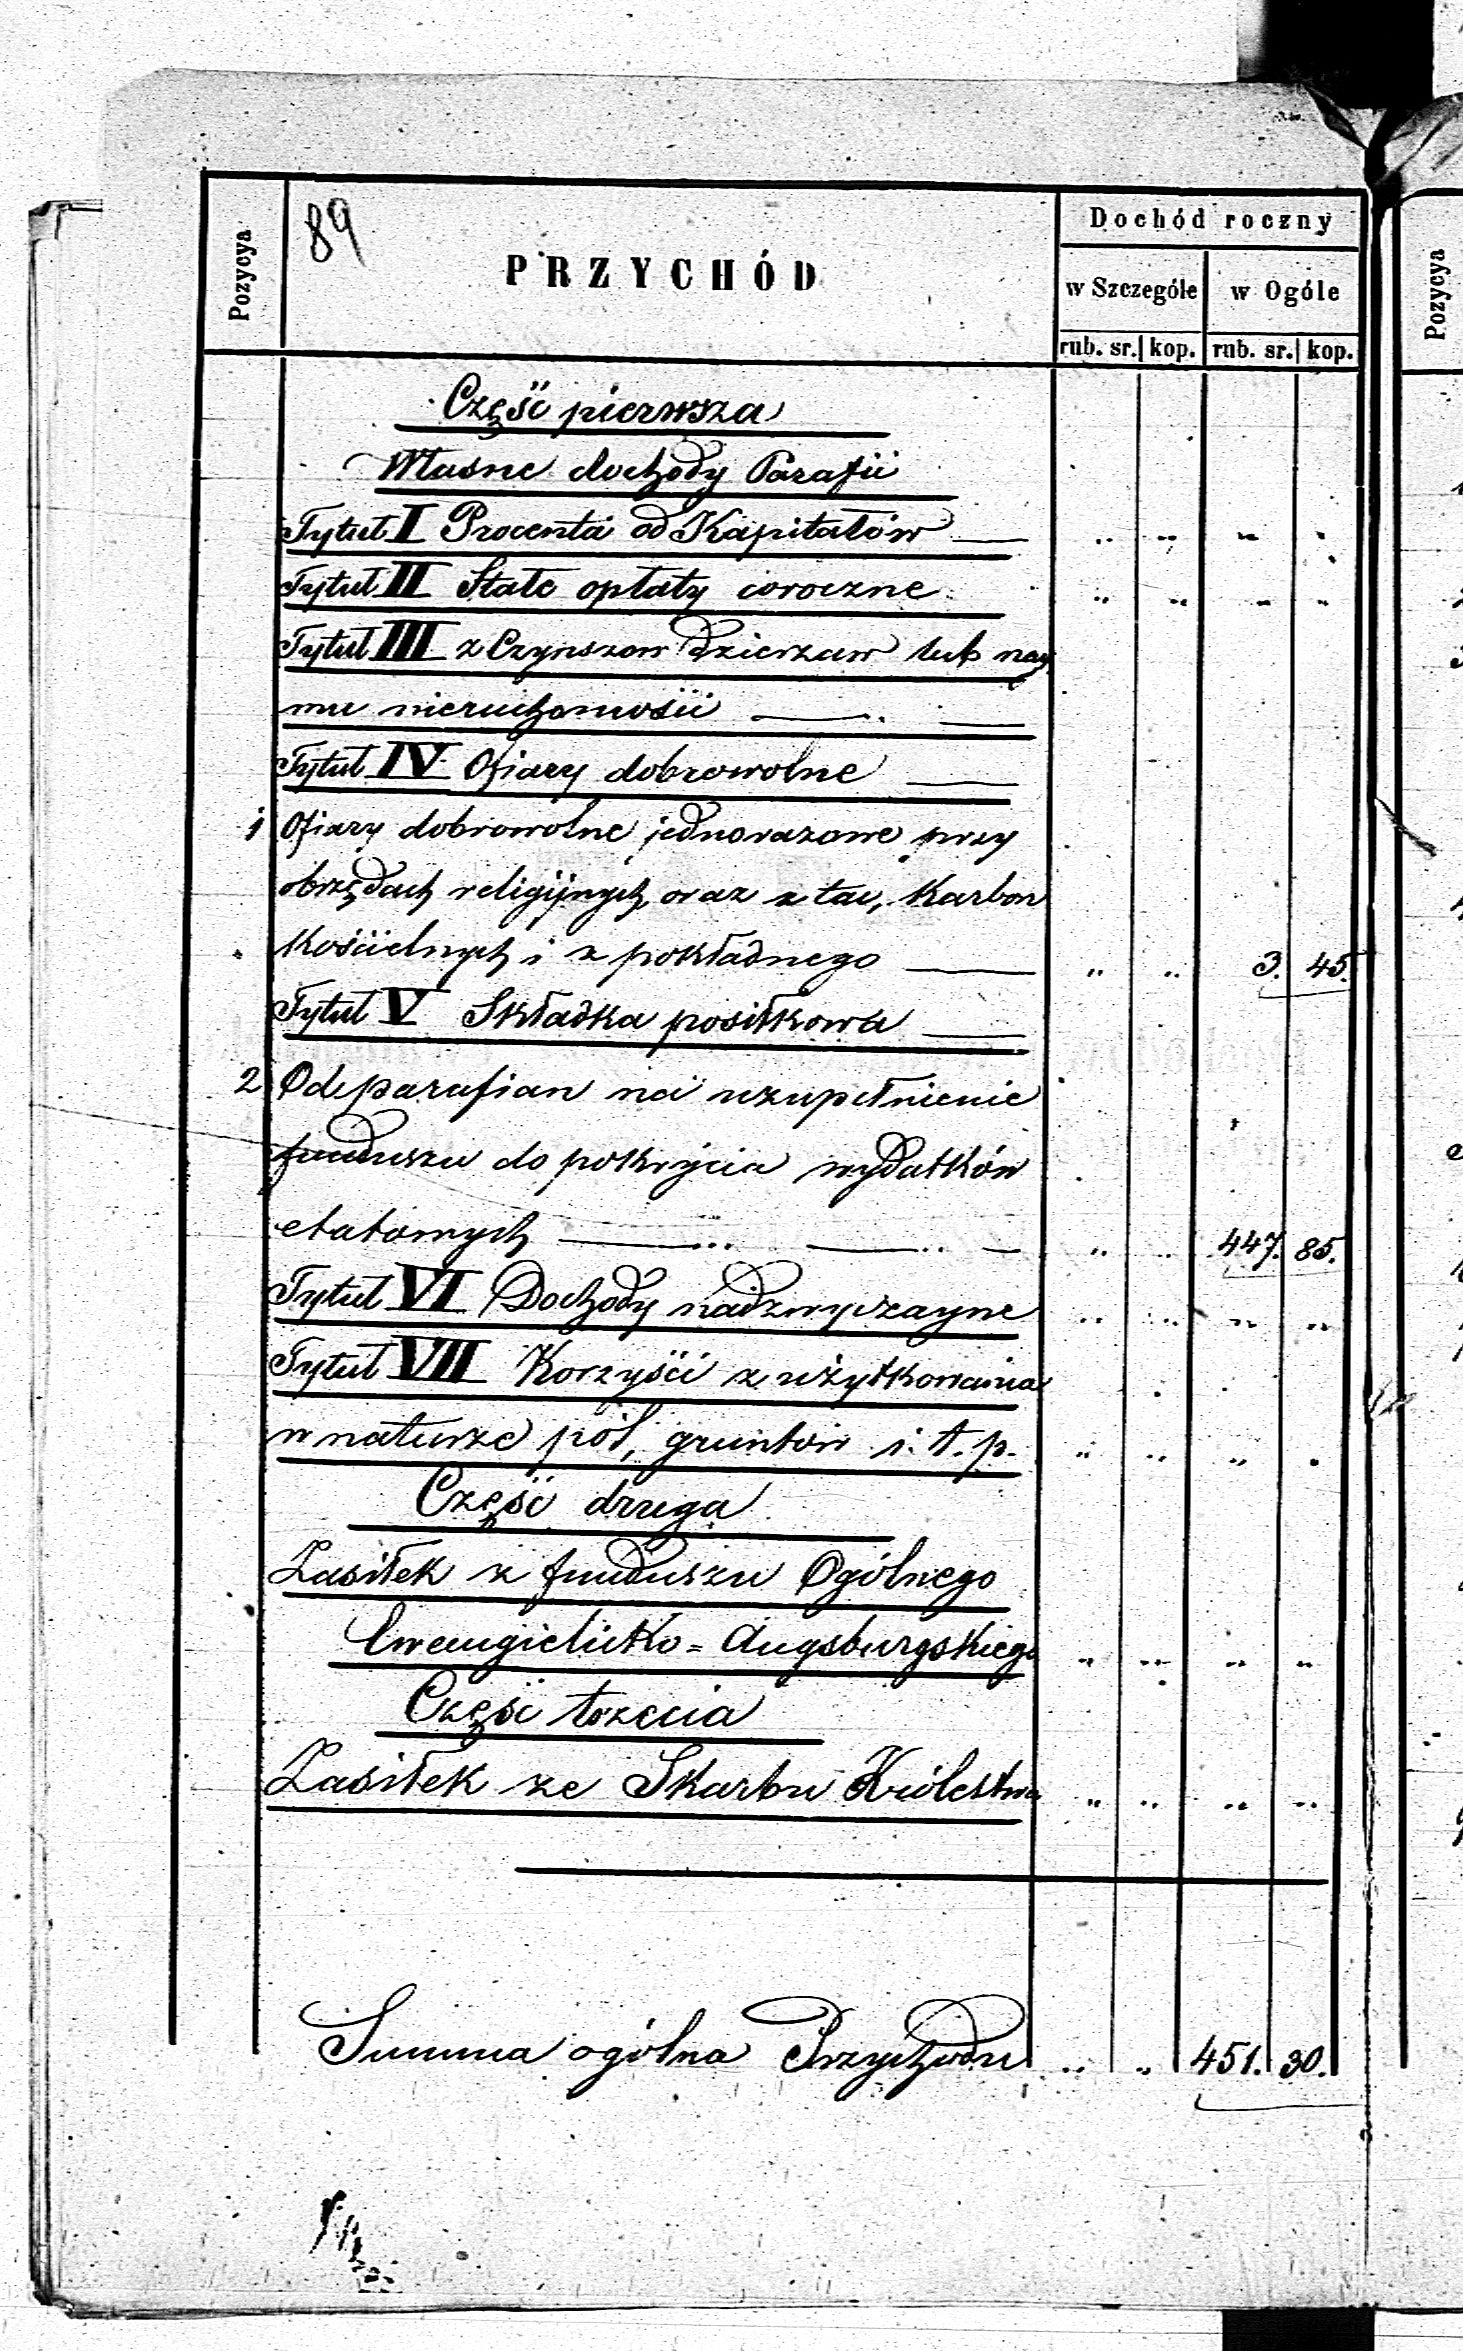 89
Pozycya
PRZYCHÓD
Dochód roczny
w Szczególe w Ogóle
rub. sr. kop. rub. sr. kop.
Pozycya
Część pierwsza
Własne dochody Parafii
Tytuł I Procenta od Kapitałów
Tytuł II Stałe opłaty coroczne
Tytuł III z Czynszow dzierzaw lub nay
mu nieruchomości
Tytuł IV Ofiary dobrowolne
1 Ofiary dobrowolne jednorazowe przy
obrzędach religijnych, oraz z tac, Karbon
Kościelnych i z pokładnego 3. 45.
Tytuł V Składka posiłkowa
2 Od parafian na uzupełnienie
funduszu do pokrycia wydatków
etatowych 447. 85.
Tytuł VI Dochody nadzwyczayne
Tytuł VII Korzyści z użytkowania
w naturze pól, gruntów i. t. p.
Część druga
Zasiłek z funduszu Ogólnego
Ewangielicko = Augsburgskiego
Część trzecia
Zasiłek ze Skarbu Królestwa
Summa ogólna Przychodu 451. 30.